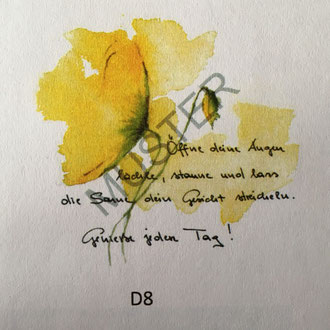 MUSTER
Öffne deine Augen
lächle, staune und lass
die Sonne dein Gesicht streicheln.
Geniesse jeden Tag!
D8